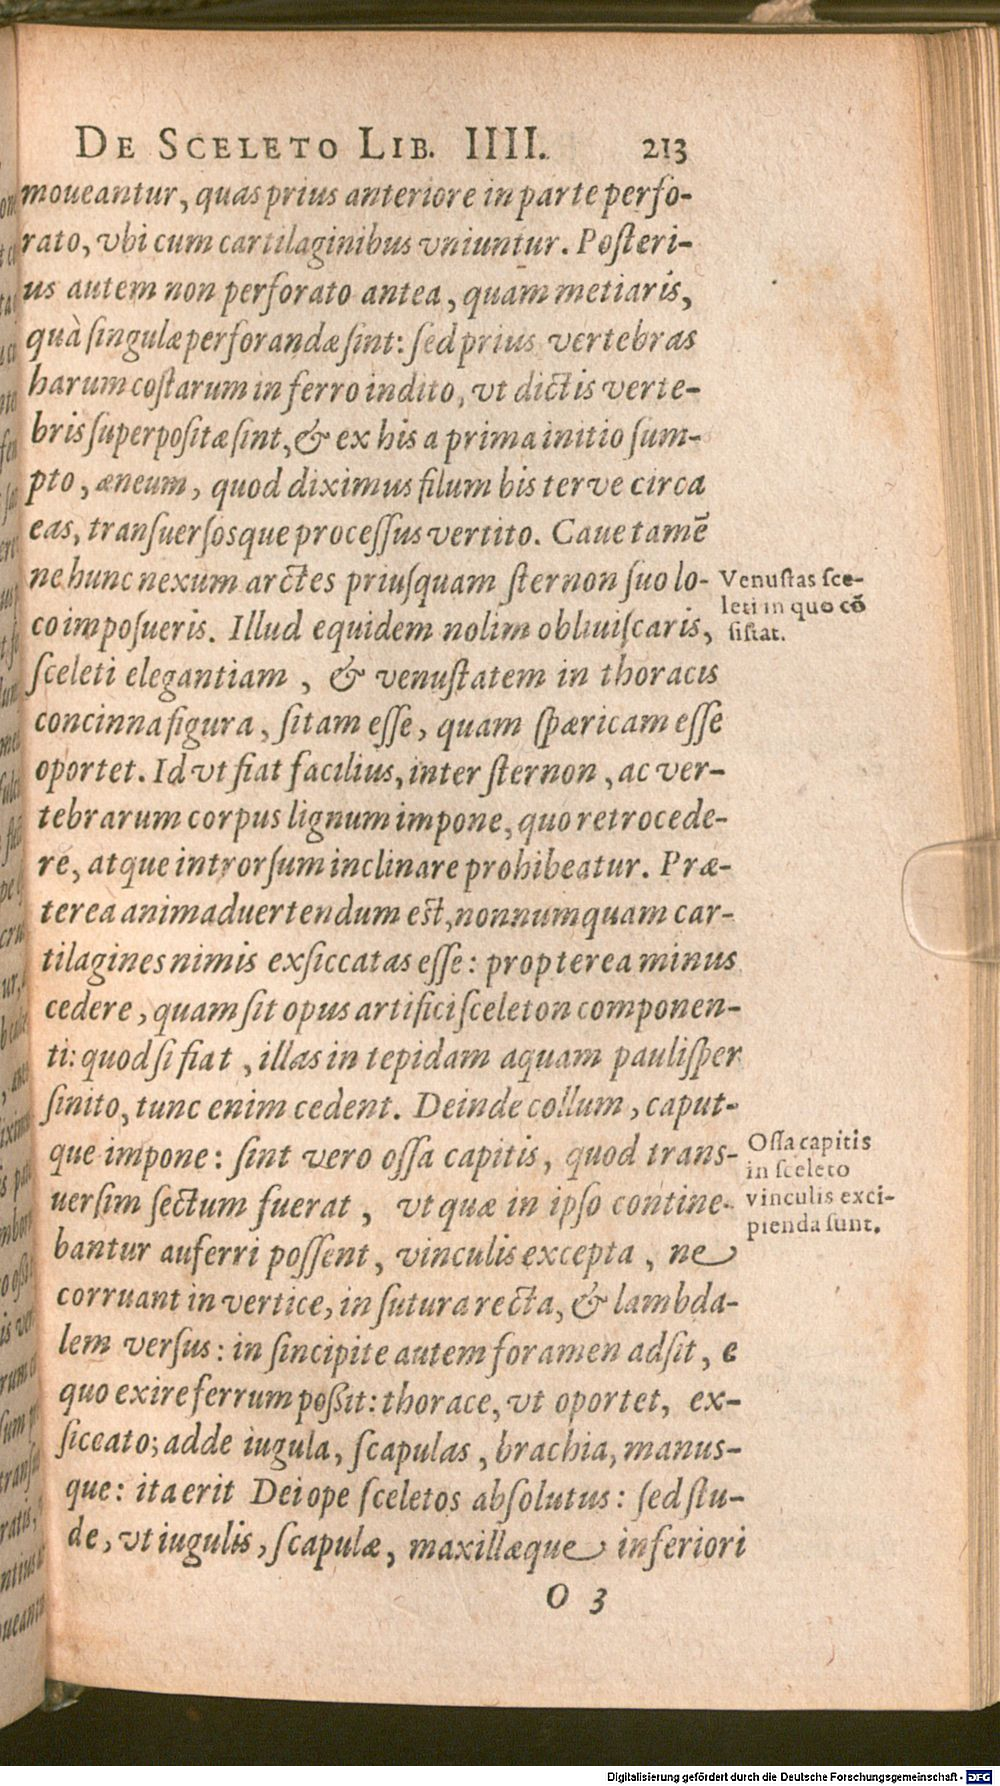 DE SCELETO LIB. IIII. 213
moueantur, quas prius anteriore in parte perfo-
rato, vbi cum cartilaginibus vniuntur. Posteri-
us autem non perforato antea, quam metiaris,
quà singulæ perforandæ sint: sed prius vertebras
harum costarum in ferro indito, vt dictis verte-
bris superpositæ sint, & ex his a prima initio sum-
pto, æneum, quod diximus filum bis terve circa
eas, transuersosque processus vertito. Caue tamē
ne hunc nexum arctes priusquam sternon suo lo-
co imposueris. Illud equidem nolim obliuiscaris,
sceleti elegantiam, & venustatem in thoracis
concinna figura, sitam esse, quam spæricam esse
oportet. Id vt fiat facilius, inter sternon, ac ver-
tebrarum corpus lignum impone, quo retrocede-
re, atque introrsum inclinare prohibeatur. Præ-
terea animaduertendum est, nonnumquam car-
tilagines nimis exsiccatas esse: propterea minus
cedere, quam sit opus artifici sceleton componen-
ti: quod si fiat, illas in tepidam aquam paulisper
sinito, tunc enim cedent. Deinde collum, caput-
que impone: sint vero ossa capitis, quod trans-
uersim sectum fuerat, vt quæ in ipso contine-
bantur auferri possent, vinculis excepta, ne
corruant in vertice, in sutura recta, & lambda-
lem versus: in sincipite autem foramen adsit, e
quo exire ferrum poßit: thorace, vt oportet, ex-
siceato; adde iugula, scapulas, brachia, manus-
que: ita erit Deiope sceletos absolutus: sed stu-
de, vt iugulis, scapulæ, maxillæque inferiori
O 3
Venustas sce-
leti in quo cō
sistat.
Ossa capitis
in sceleto
vinculis exci-
pienda sunt.
Digitalisierung gefördert durch die Deutsche Forschungsgemeinschaft - DFG